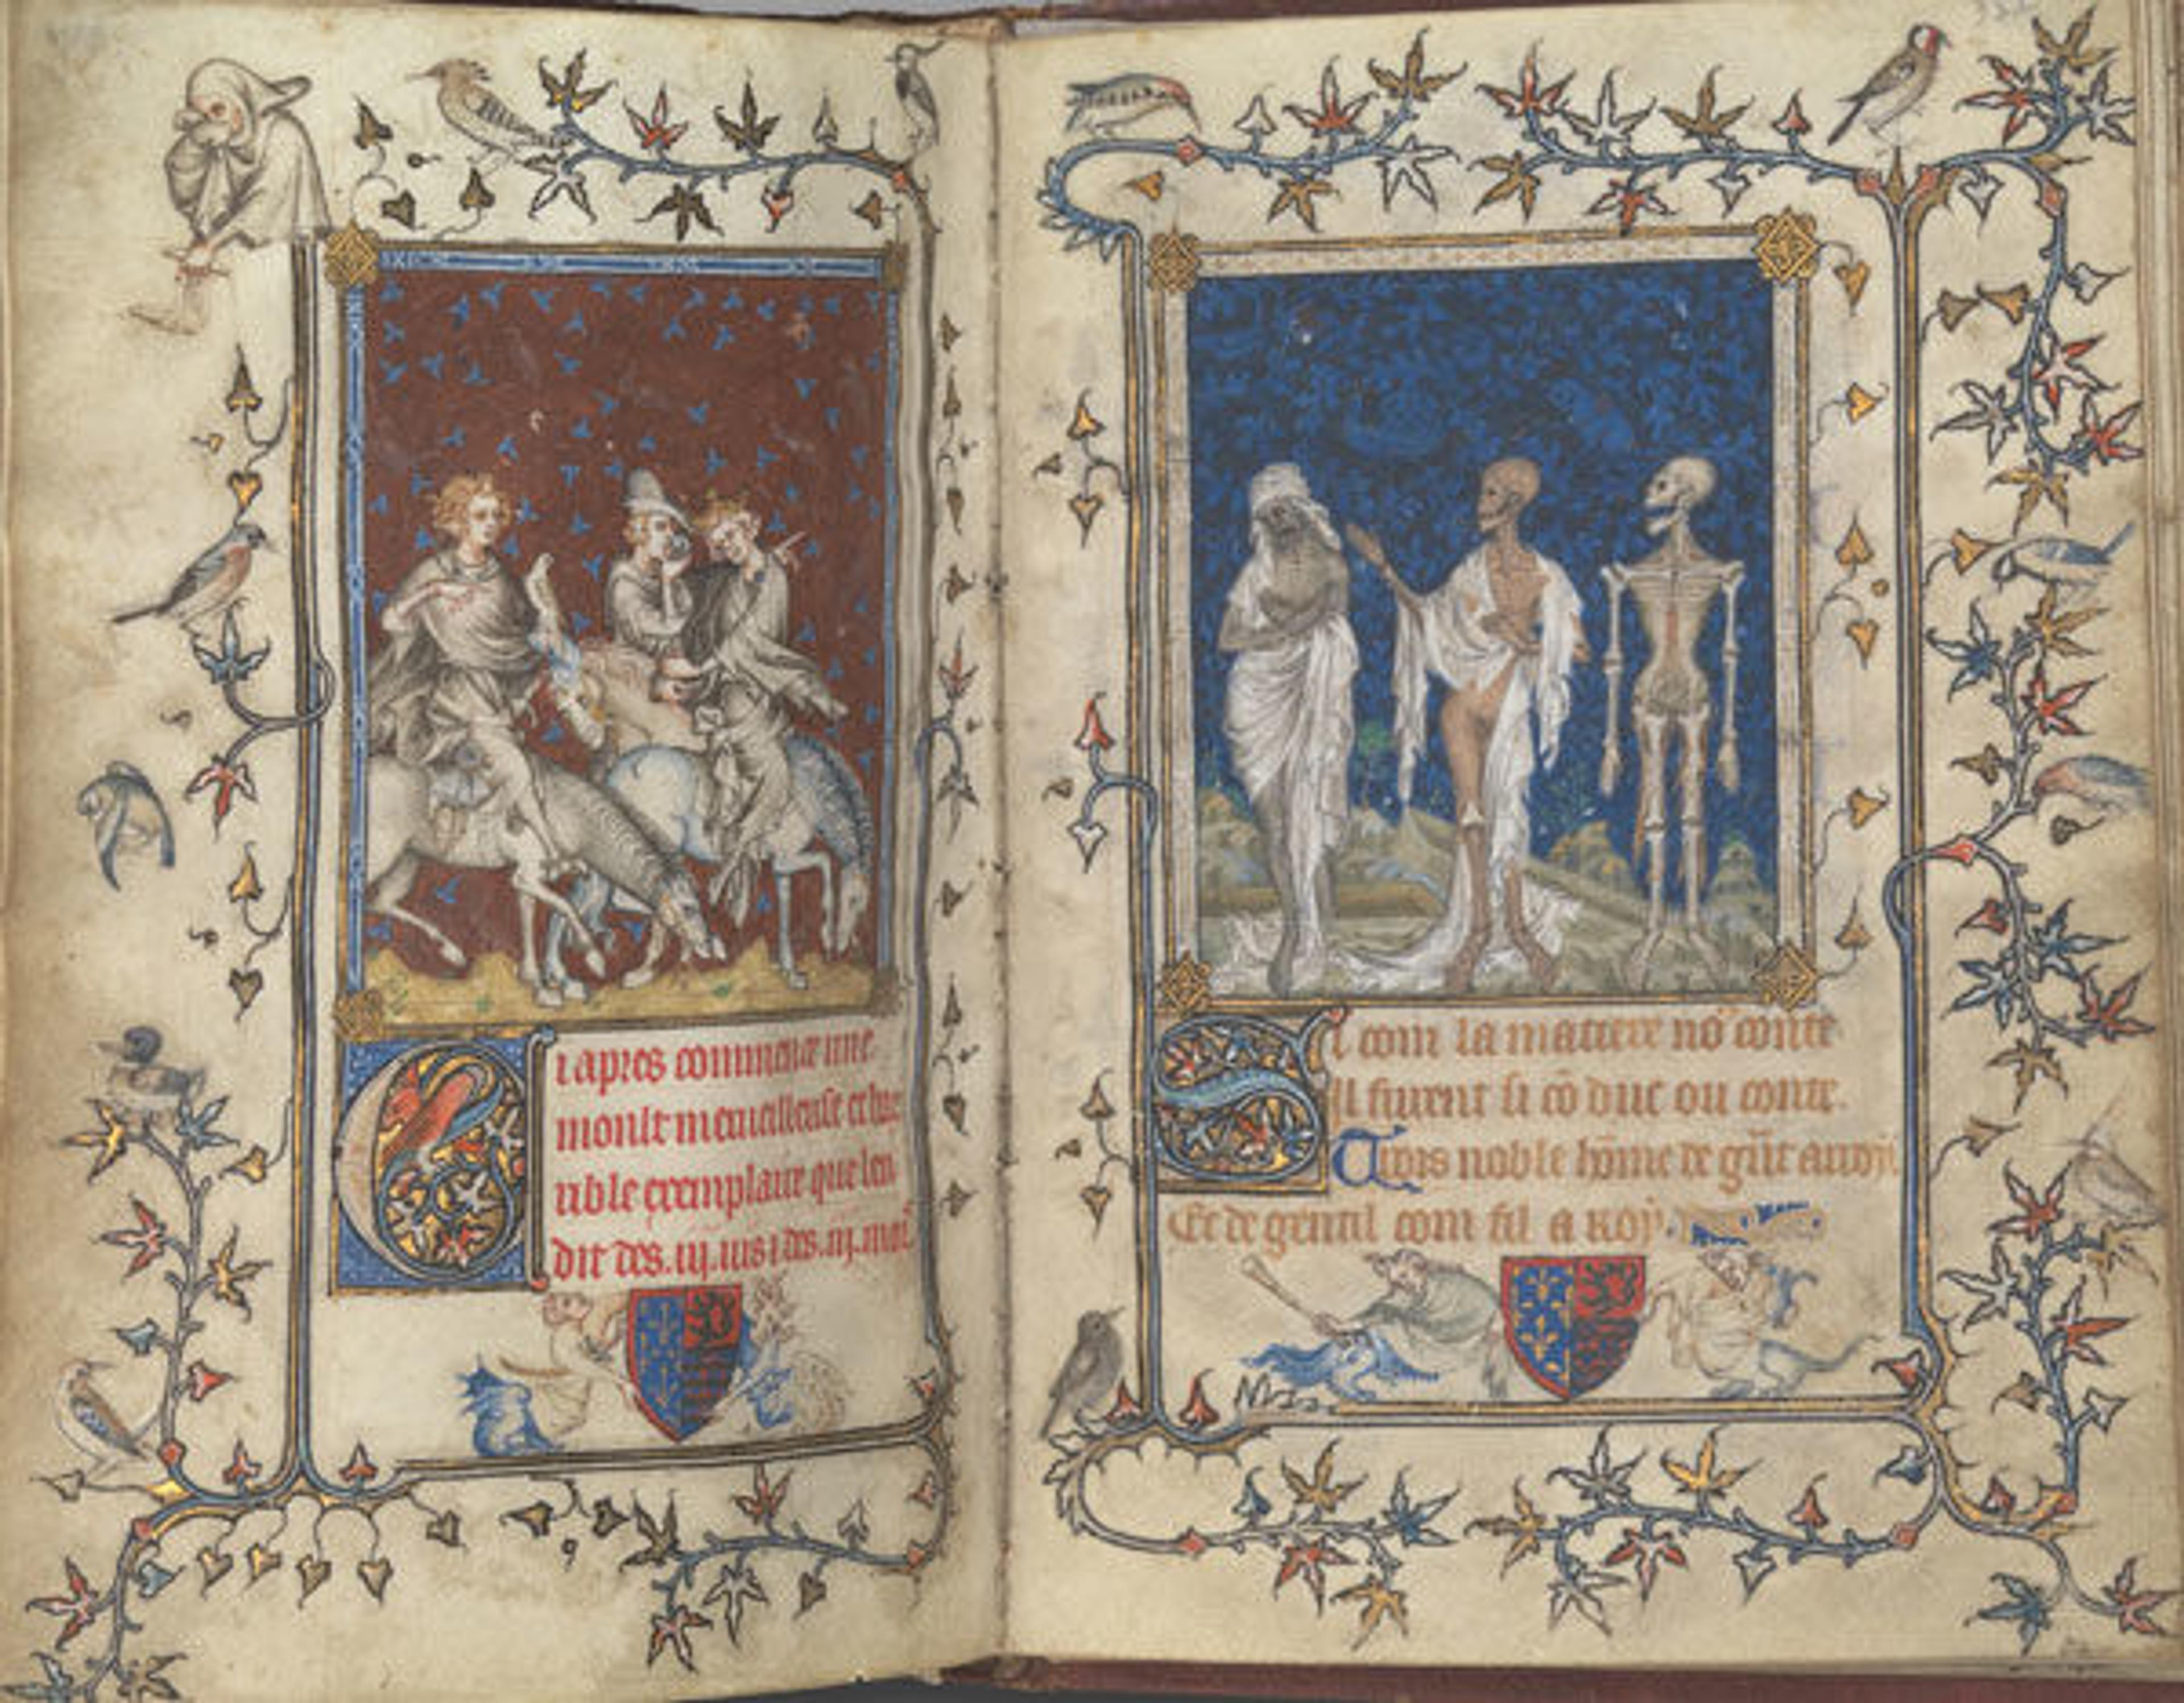 Ci apres commence une
moult merueilleuse et hor
rible exemplaire que len
dit des .iij. uis 7 des .iij. mors
Si com la matiere no conte
Il furent si co duc ou conte.
Trois noble home de grant arroy
Et de gentil com fil a roy.